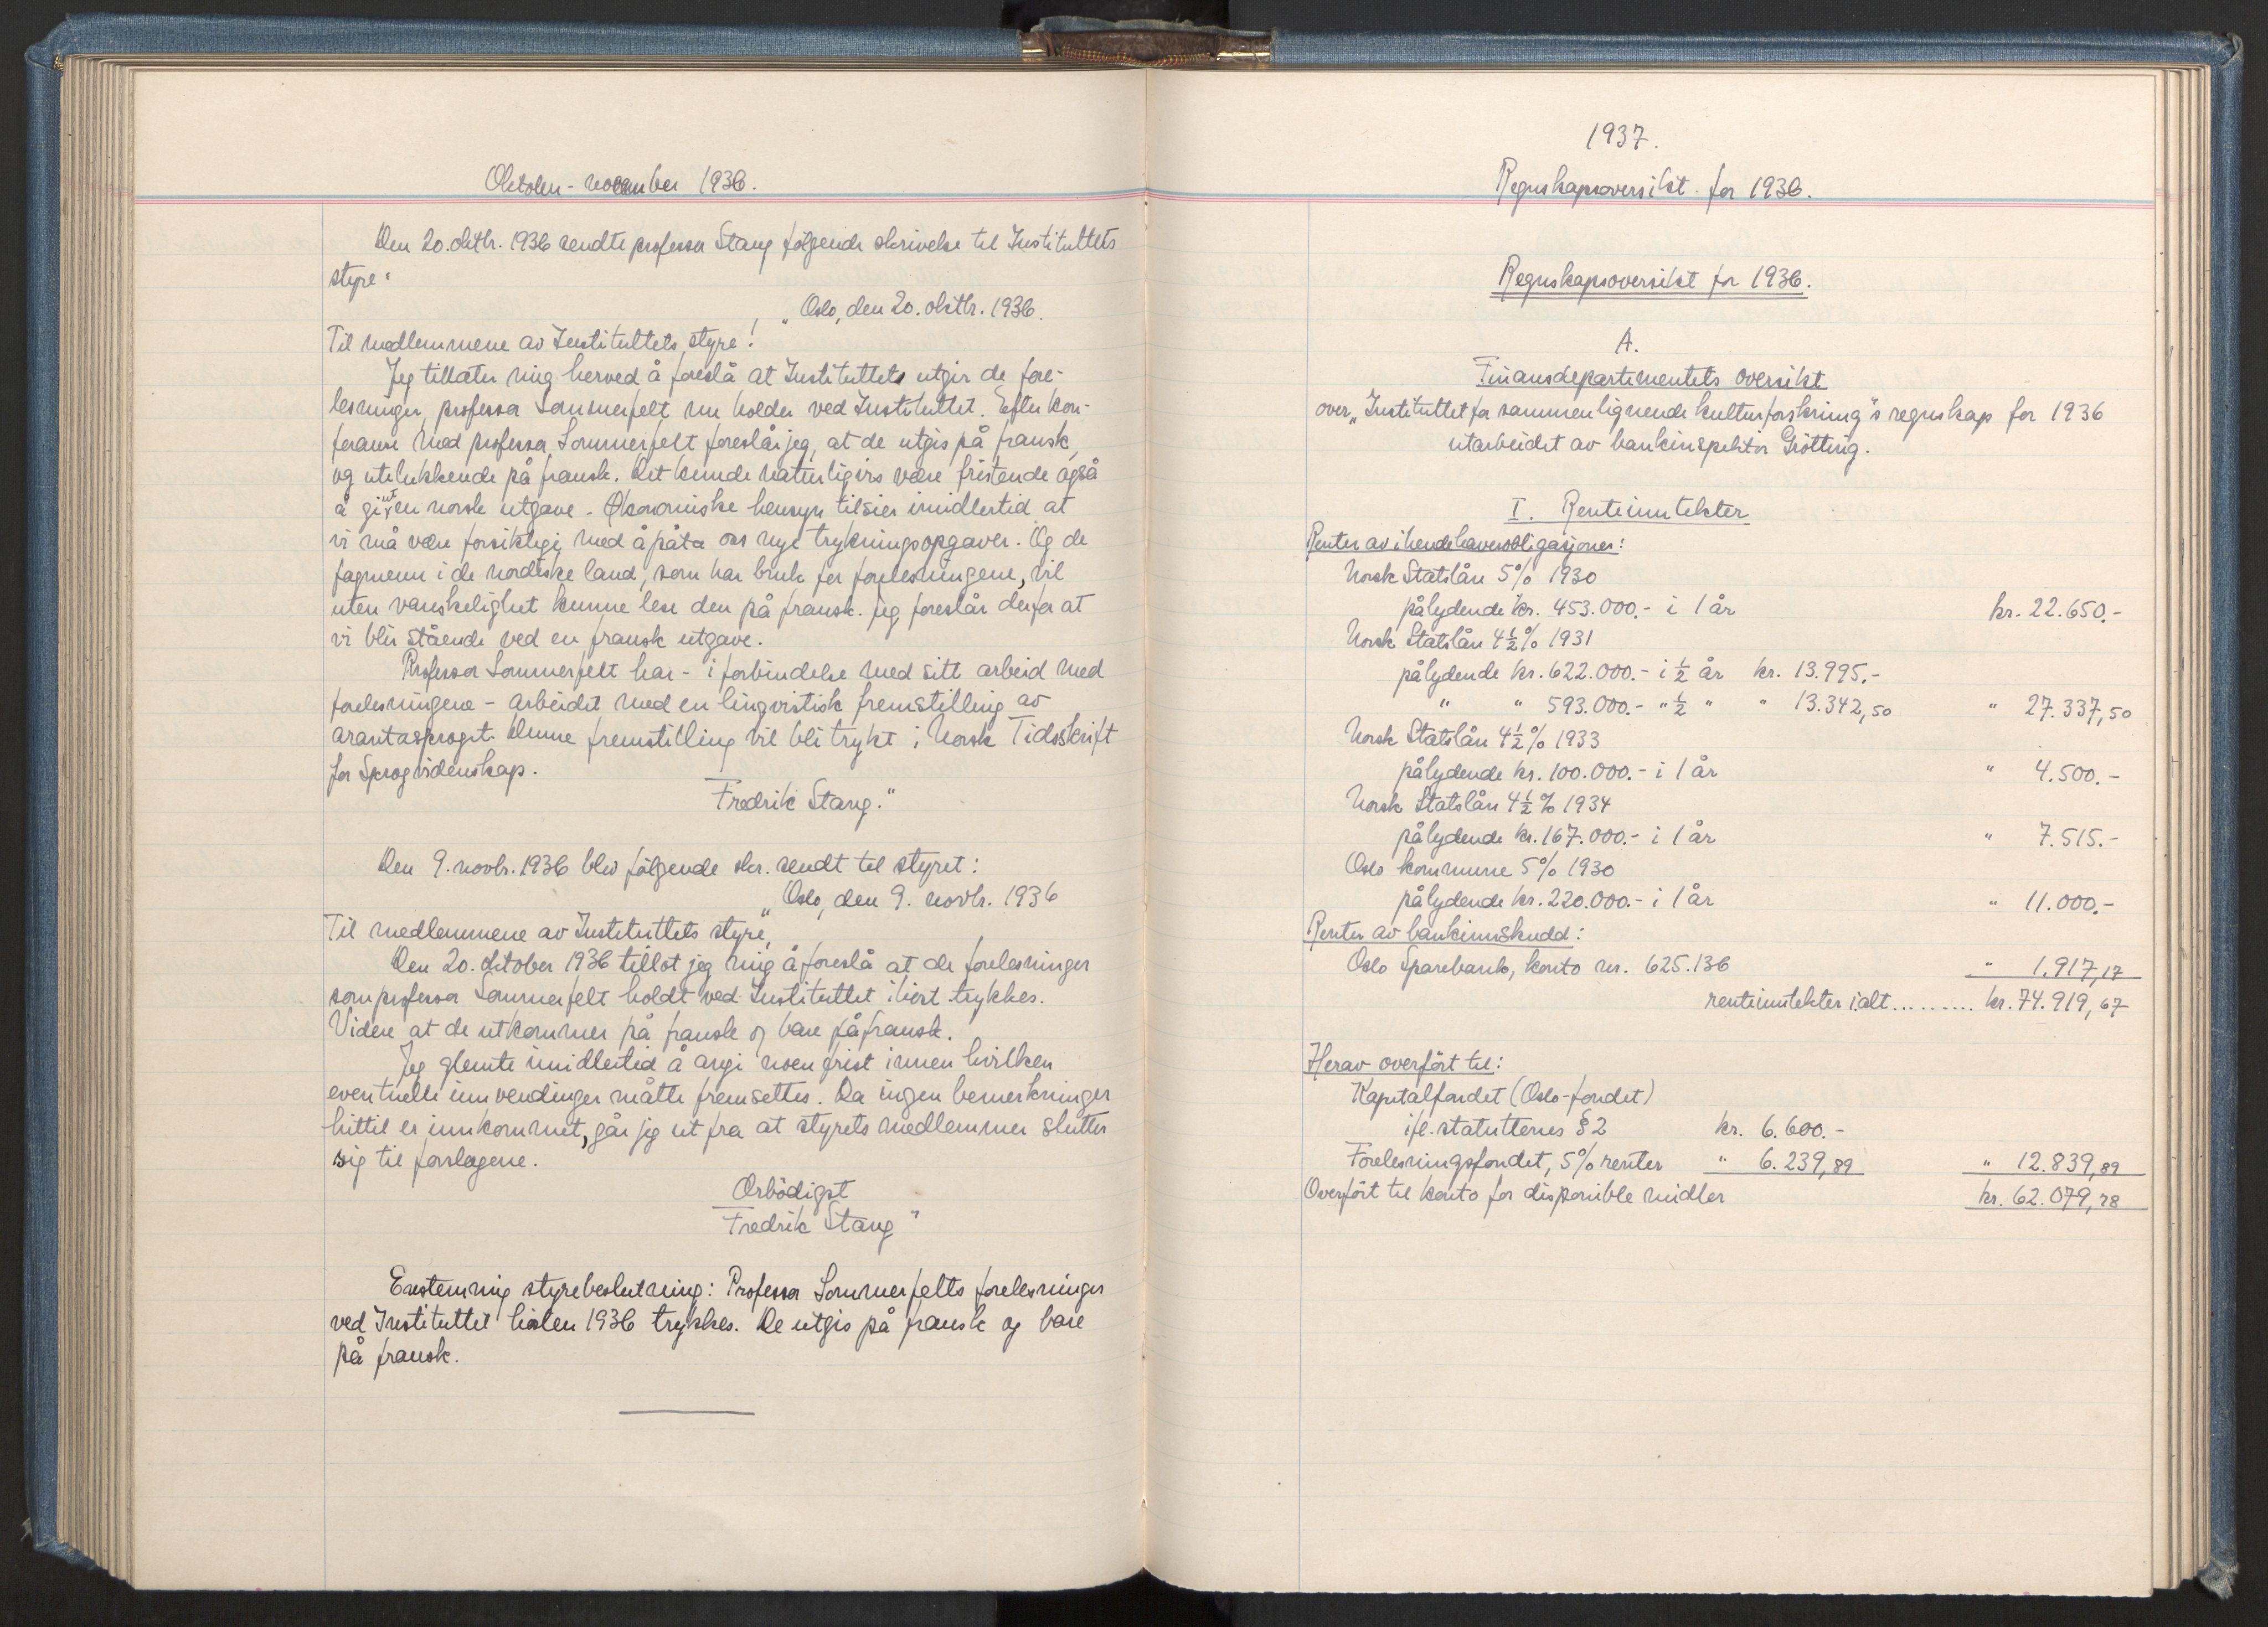 Oktober - november 1936.
Den 20. oktbr. 1936 sendte professor Stang følgende skrivelse til Instituttets
styre:
„Oslo, den 20. oktbr. 1936.
Til medlemmene av Instituttets styre!
Jeg tillater mig herved å foreslå at Instituttets utgir de fore-
lesninger, professor Sommerfelt nu holder ved Instituttet. Efter kon-
feranse med professor Sommerfelt foreslår jeg, at de utgis på fransk,
og utelukkende på fransk. Det kunde naturligvis være fristende også
å gi ut en norsk utgave. Økonomiske hensyn tilsier imidlertid at
vi må være forsiktige med å påta oss nye trykningsopgaver. Og de
fagmenn i de nordiske land, som har bruk for forelesningene, vil
uten vanskelighet kunne lese den på fransk. Jeg foreslår derfor at
vi blir stående ved en fransk utgave.
Professor Sommerfelt har - i forbindelse med sitt arbeid med
forelesningene - arbeidet med en lingvistisk fremstilling av
arantasproget. Denne fremstilling vil bli trykt i Norsk Tidsskrift
for Sprogvidenskap.
Fredrik Stang."
Den 9. novbr. 1936 blev følgende skr. sendt til styret:
„Oslo, den 9. novbr. 1936
Til medlemmene av Instituttets styre,
Den 20. oktober 1936 tillot jeg mig å foreslå at de forelesninger
som professor Sommerfelt holdt ved Instituttet ihøst trykkes.
Videre at de utkommer på fransk og bare på fransk.
Jeg glemte imidlertid å angi noen frist innen hvilken
eventuelle innvendinger måtte fremsettes. Da ingen bemerkninger
hittil er innkommet, går jeg ut fra at styrets medlemmer slutter
sig til forslagene.
Ærbödigst
Fredrik Stang"
Enstemmig styrebeslutning: Professor Sommerfelts forelesninger
ved Instituttet hösten 1936 trykkes. De utgis på fransk og bare
på fransk.
1937.
Regnskapsoversikt for 1936.
Regnskapsoversikt for 1936.
A.
Finansdepartementets oversikt
over „Instituttet for sammenlignende kulturforskning"s regnskap for 1936
utarbeidet av bankinspektör Grötting.
I. Renteinntekter
Renter av ihendehaverobligasjoner:
Norsk Statslån 5% 1930
pålydende kr. 453.000.- i 1 år kr. 22.650.-
Norsk Statslån 4½% 1931
pålydende kr. 622.000.- i ½ år kr. 13.995.-
" " 593.000.- " ½ " " 13.342,50 " 27.337,50
Norsk Statslån 4½% 1933
pålydende kr. 100.000.- i 1 år " 4.500.-
Norsk Statslån 4½% 1934
pålydende kr. 167.000.- i 1 år " 7.515.-
Oslo kommune 5% 1930
pålydende kr. 220.000.- i 1 år " 11.000.-
Renter av bankinnskudd:
Oslo Sparebank, konto nr. 625.136 " 1.917,17
renteinntekter ialt......... kr. 74.919,67
Herav overfört til:
Kapitalfondet (Oslo-fondet)
ifl. statuttenes § 2 kr. 6.600.-
Forelesningsfondet, 5% renter " 6.239,89 " 12.839,89
Overfört til konto for disponible midler kr. 62.079,78